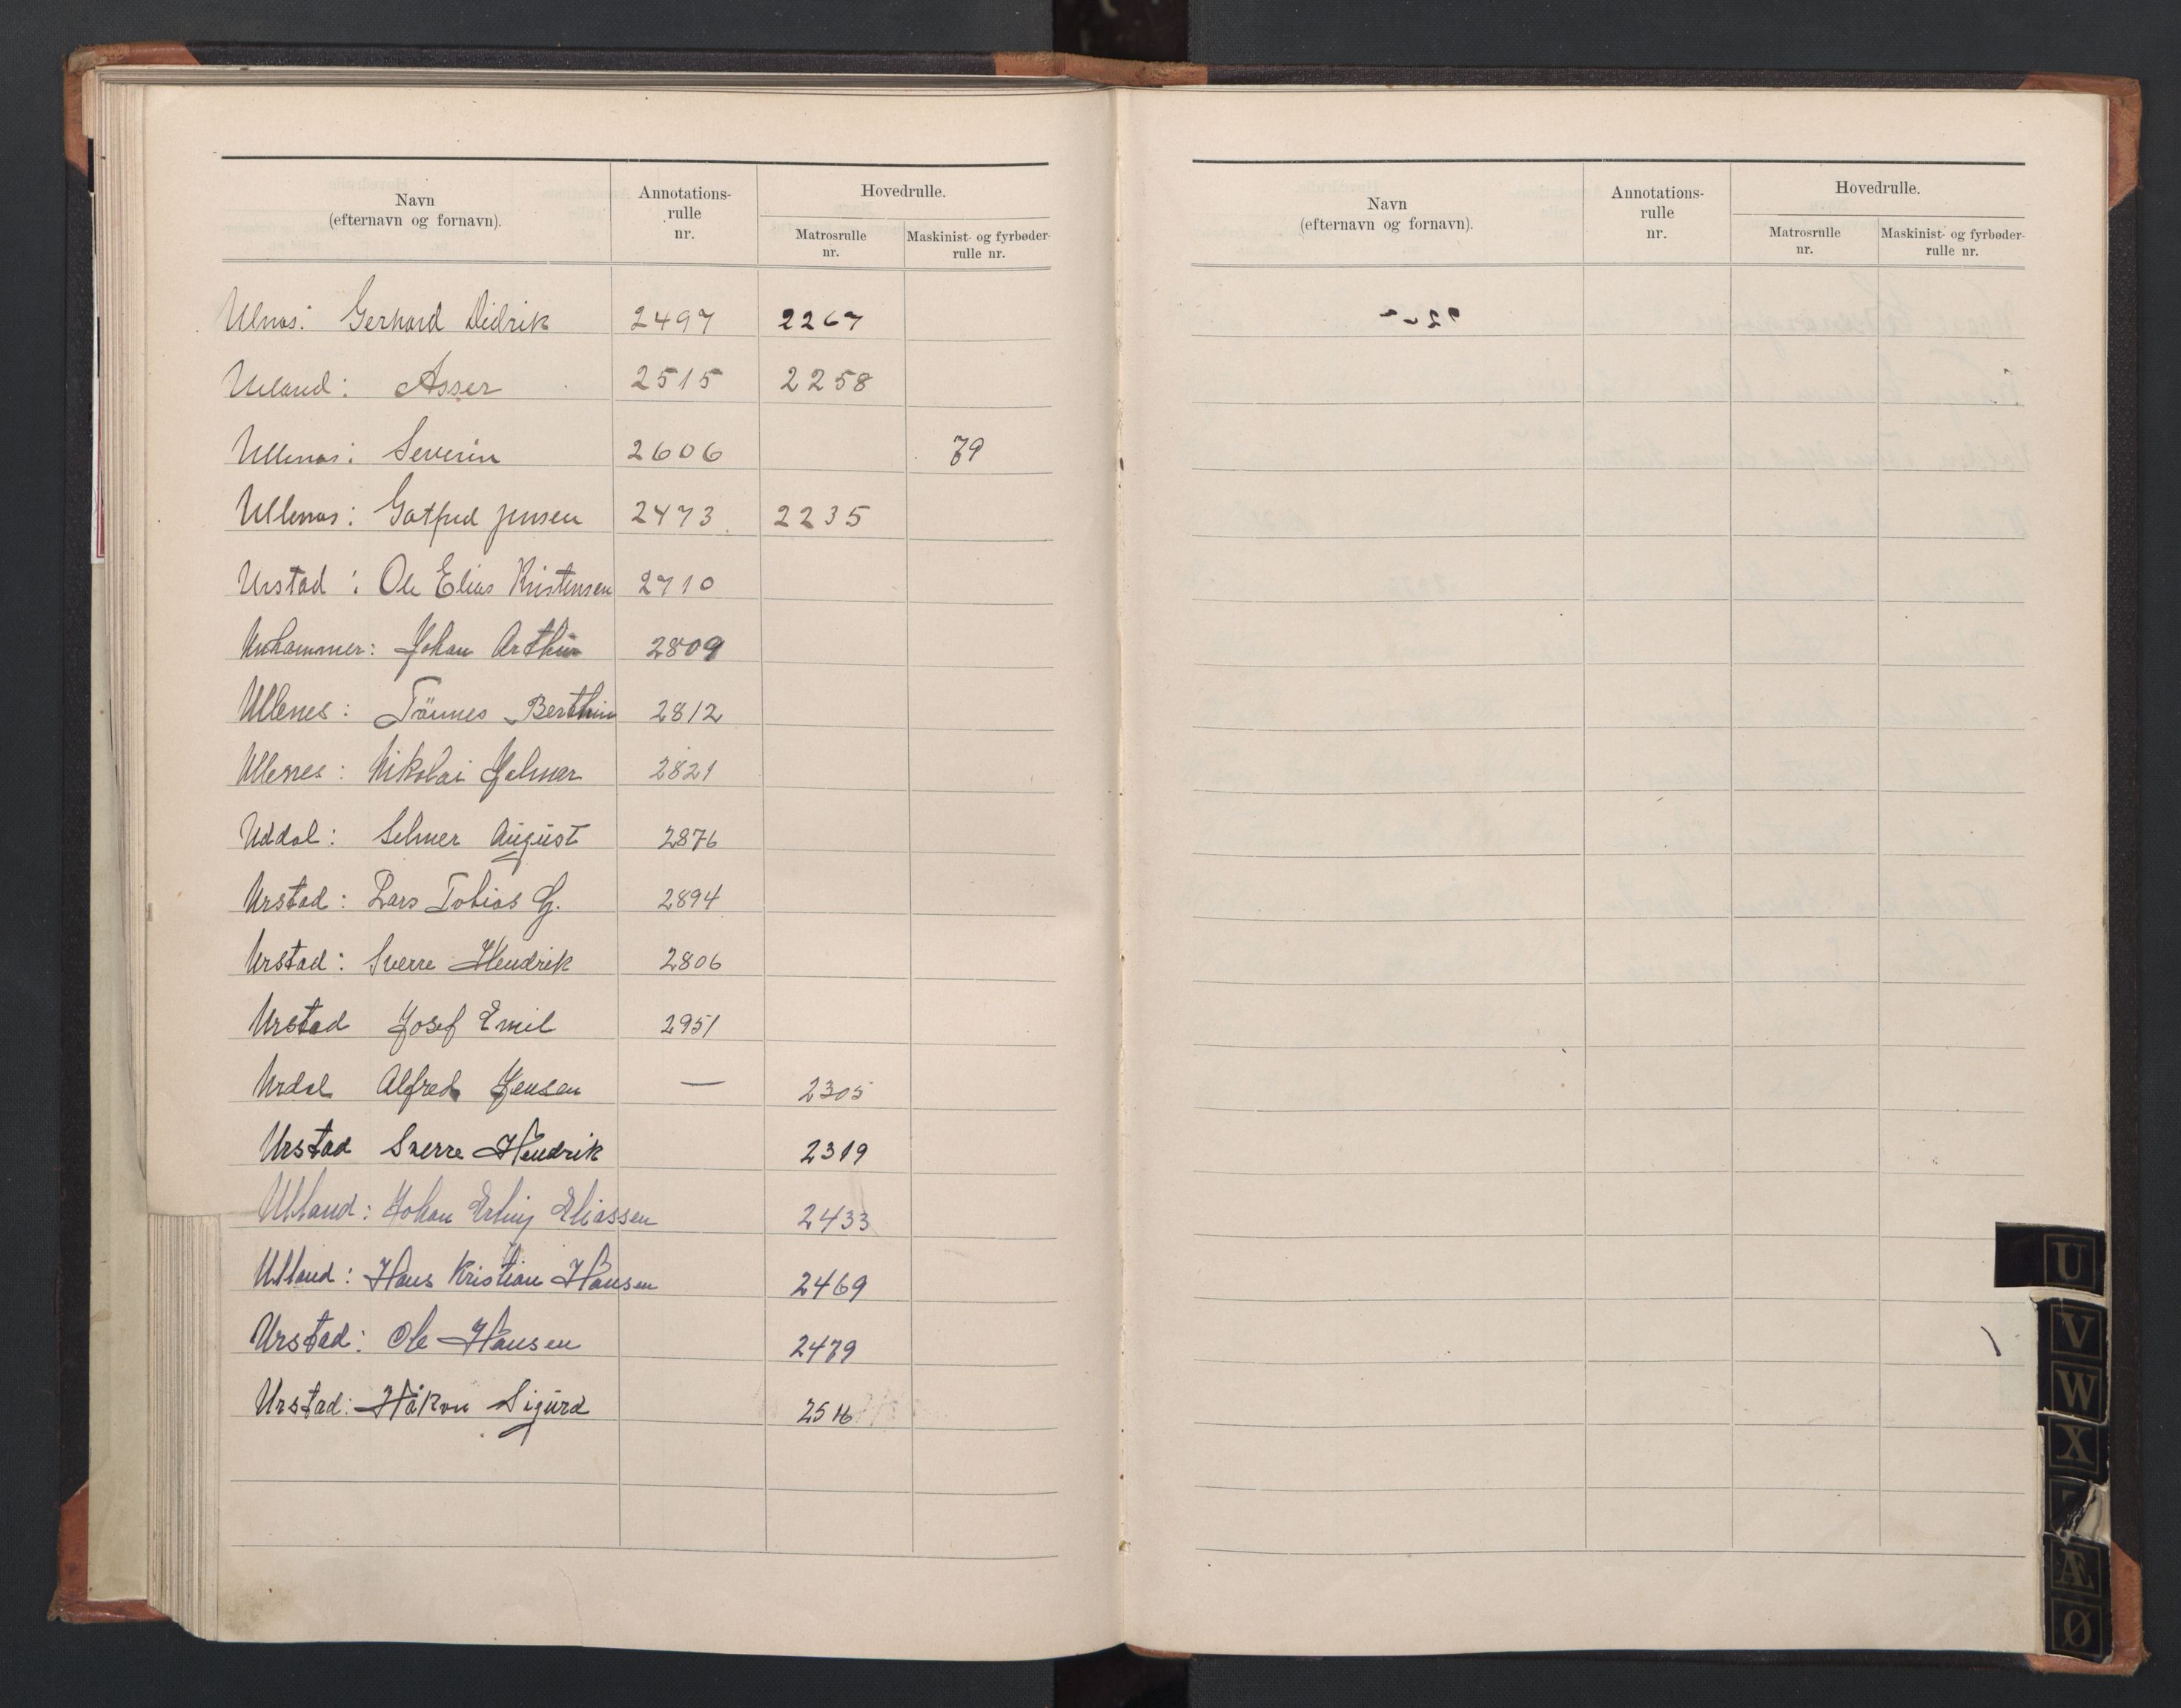 Navn
(efternavn og fornavn).
Annotations-
rulle
nr.
Hovedrulle.
Matrosrulle
nr.
Maskinist- og fyrbøder-
rulle nr.
Ulnas: Gerhard Didrik 2497 2267
Ueland: Asser 2515 2258
Ullenas: Severin 2606 79
Ullenas: Gotfred Jensen 2473 2235
Urstad: Ole Elias Kristensen 2710
Johan Arthur 2809
Ullenes: Tönnes Berthin 2812
Ullenes: Nikolai Hjalmar 2821
Uddal: Selmer August 2876
Urstad: Lars Tobias G. 2894
Urstad: Sverre Hendrik 2806
Urstad Josef Emil 2951
Urdal Alfred Jensen — 2305
Urstad Sverre Hendrik 2319
Ulland: Johan Erling Eliassen 2433
Ulland: Hans Kristian Hansen 2469
Urstad: Ole Hansen 2479
Urstad: Håkon Sigurd 2516
Navn
(efternavn og fornavn).
Annotations-
rulle
nr.
Hovedrulle.
Matrosrulle
nr.
Maskinist- og fyrbøder-
rulle nr.
U
V
W
X
Æ
Ø